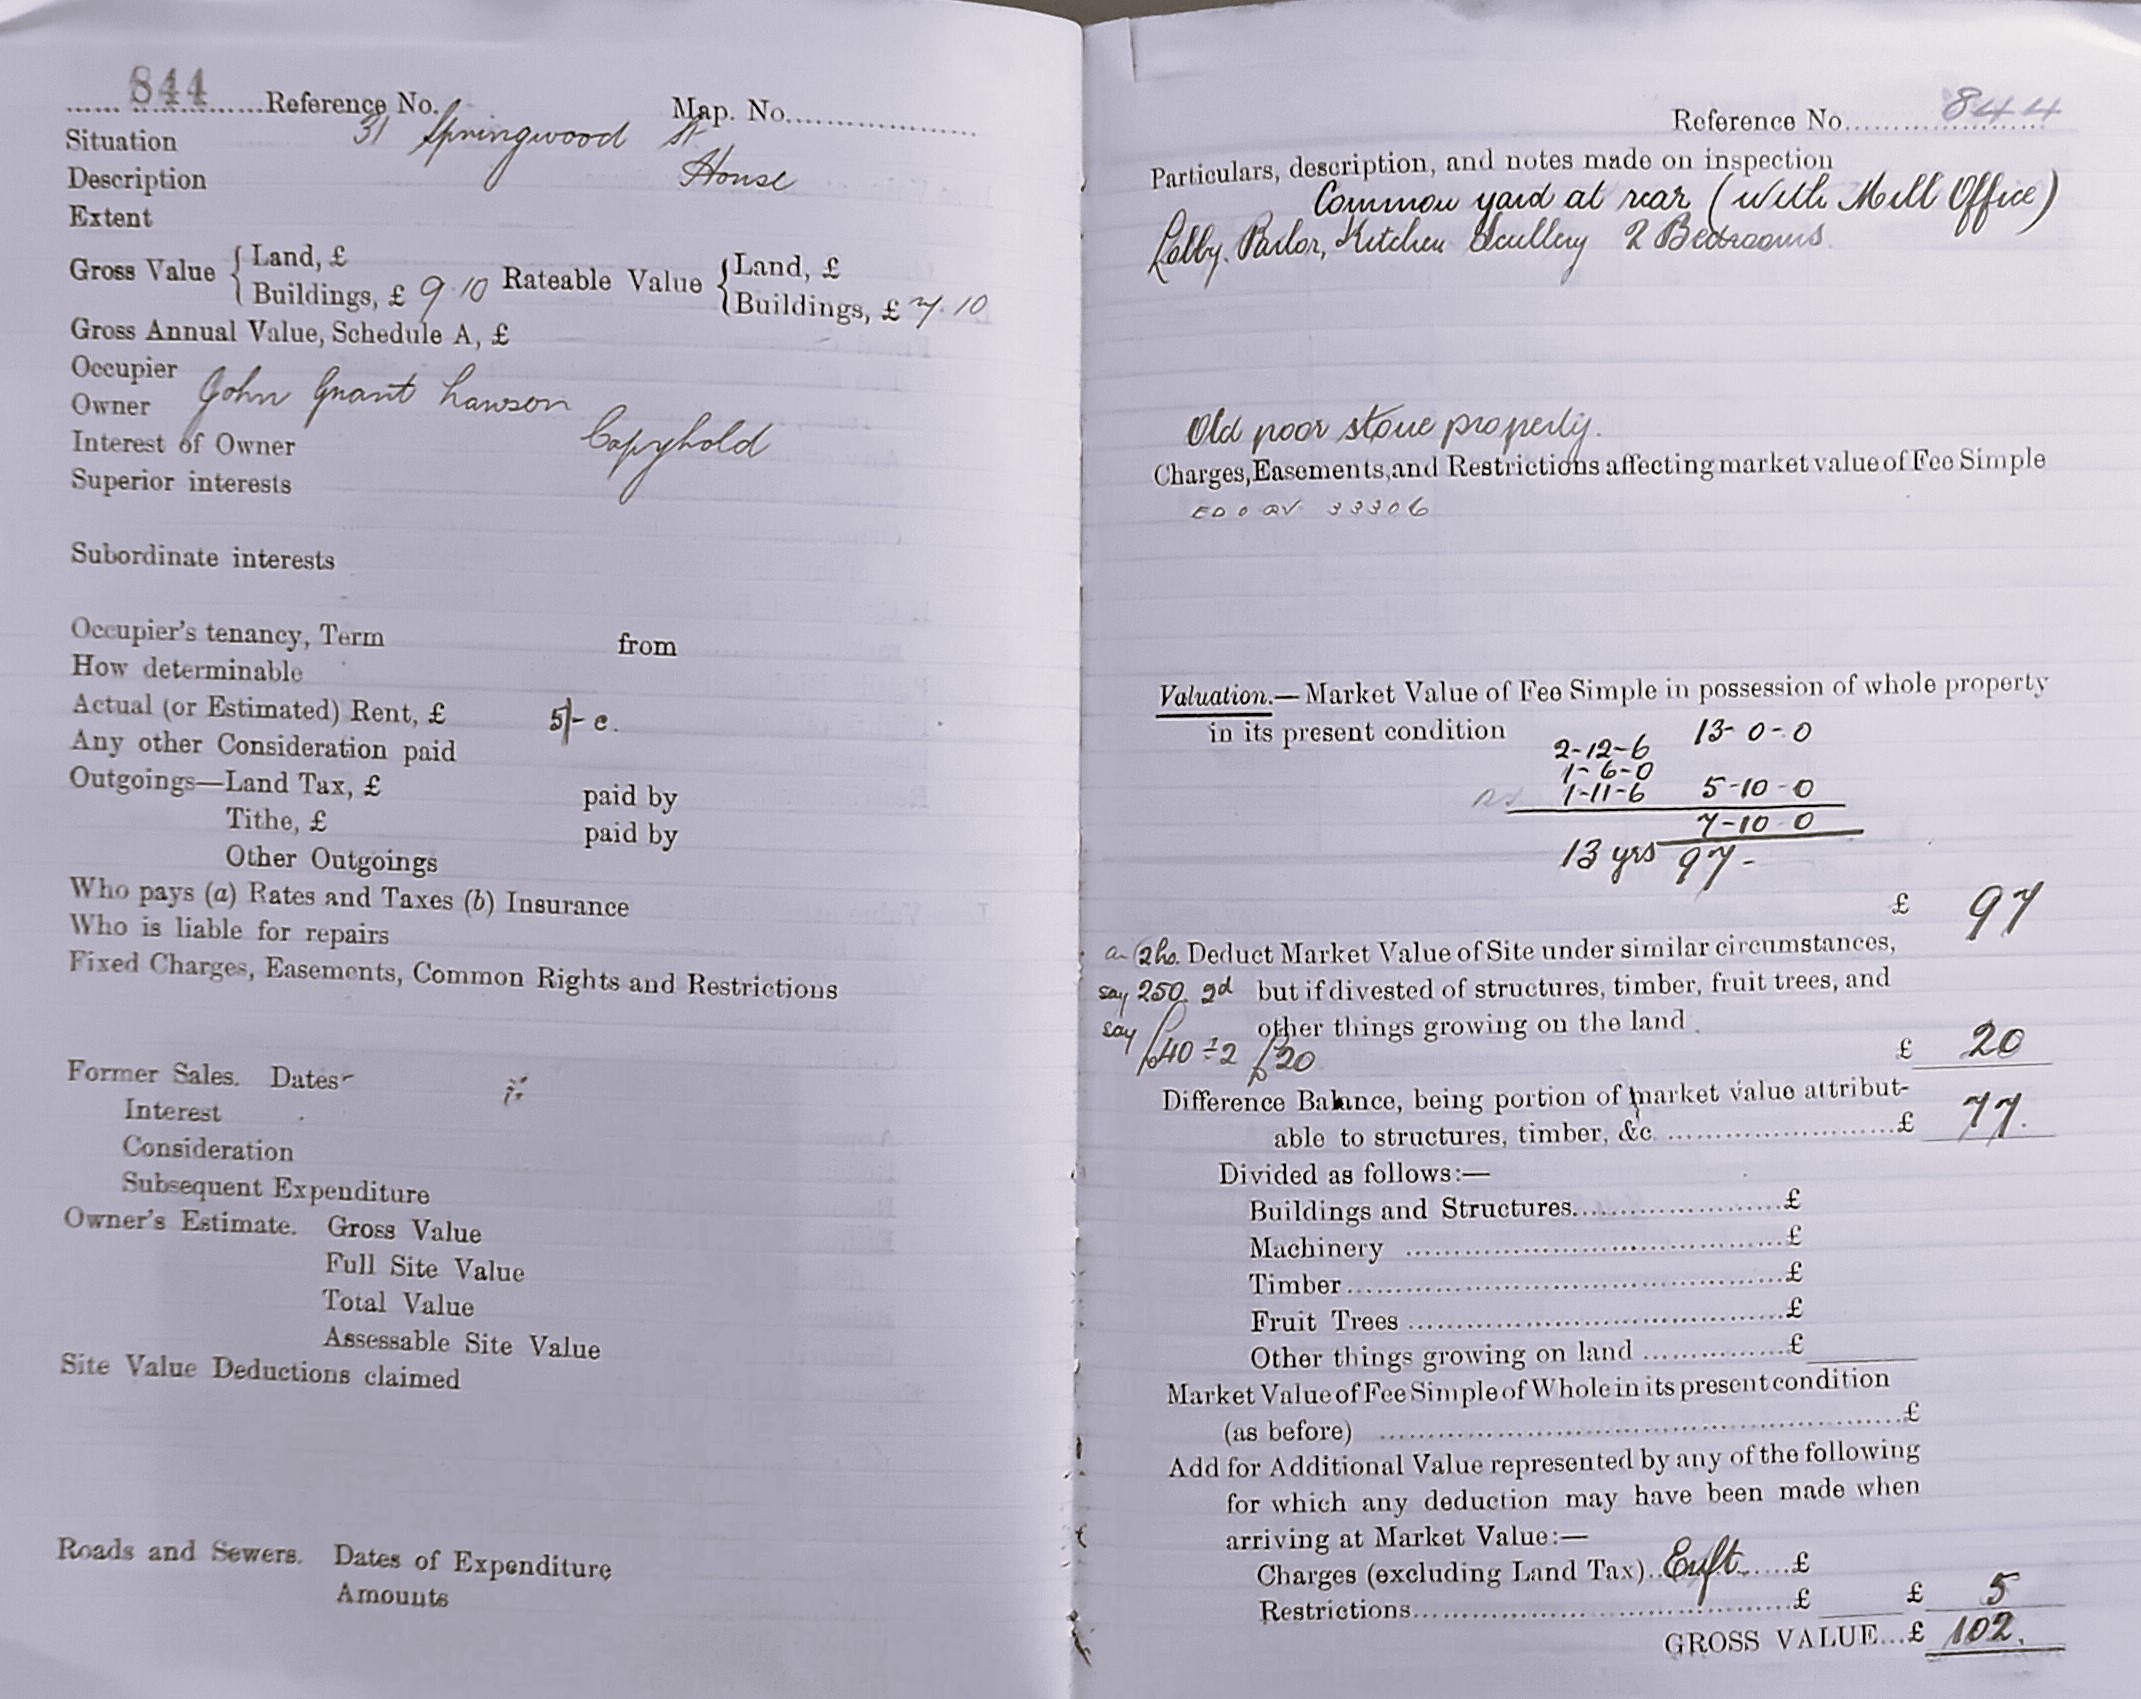 844 Reference No. Map. No.
Situation 31 Springwood St.
Description House
Extent
Gross Value { Land, £ Rateable Value { Land, £
Buildings, £ 9·10 Buildings, £ 7·10
Gross Annual Value, Schedule A, £
Occupier
Owner John Grant Lawson
Interest of Owner Copyhold
Superior interests
Subordinate interests
Occupier's tenancy, Term from
How determinable
Actual (or Estimated) Rent, £ 5/- c.
Any other Consideration paid
Outgoings—Land Tax, £ paid by
Tithe, £ paid by
Other Outgoings
Who pays (a) Rates and Taxes (b) Insurance
Who is liable for repairs
Fixed Charges, Easements, Common Rights and Restrictions
Former Sales. Dates
Interest
Consideration
Subsequent Expenditure
Owner's Estimate. Gross Value
Full Site Value
Total Value
Assessable Site Value
Site Value Deductions claimed
Roads and Sewers. Dates of Expenditure
Amounts
Reference No. 844
Particulars, description, and notes made on inspection
Common yard at rear (with Mill Office)
Lobby. Parlor, Kitchen Scullery 2 Bedrooms.
Old poor stone property.
Charges, Easements, and Restrictions affecting market value of Fee Simple
33306
Valuation.— Market Value of Fee Simple in possession of whole property
in its present condition 13-0-0
2-12-6
1-6-0
1-11-6 5-10-0
7-10 0
13 yrs 97-
£ 97
2 ho. Deduct Market Value of Site under similar circumstances,
say 250 yd but if divested of structures, timber, fruit trees, and
say £40 ÷ 2 £20 other things growing on the land
£ 20
Difference Balance, being portion of market value attribut-
able to structures, timber, &c. £ 77.
Divided as follows:—
Buildings and Structures £
Machinery £
Timber £
Fruit Trees £
Other things growing on land £
Market Value of Fee Simple of Whole in its present condition
(as before) £
Add for Additional Value represented by any of the following
for which any deduction may have been made when
arriving at Market Value:—
Charges (excluding Land Tax) Enft. £
Restrictions £ £ 5
GROSS VALUE...£ 102.